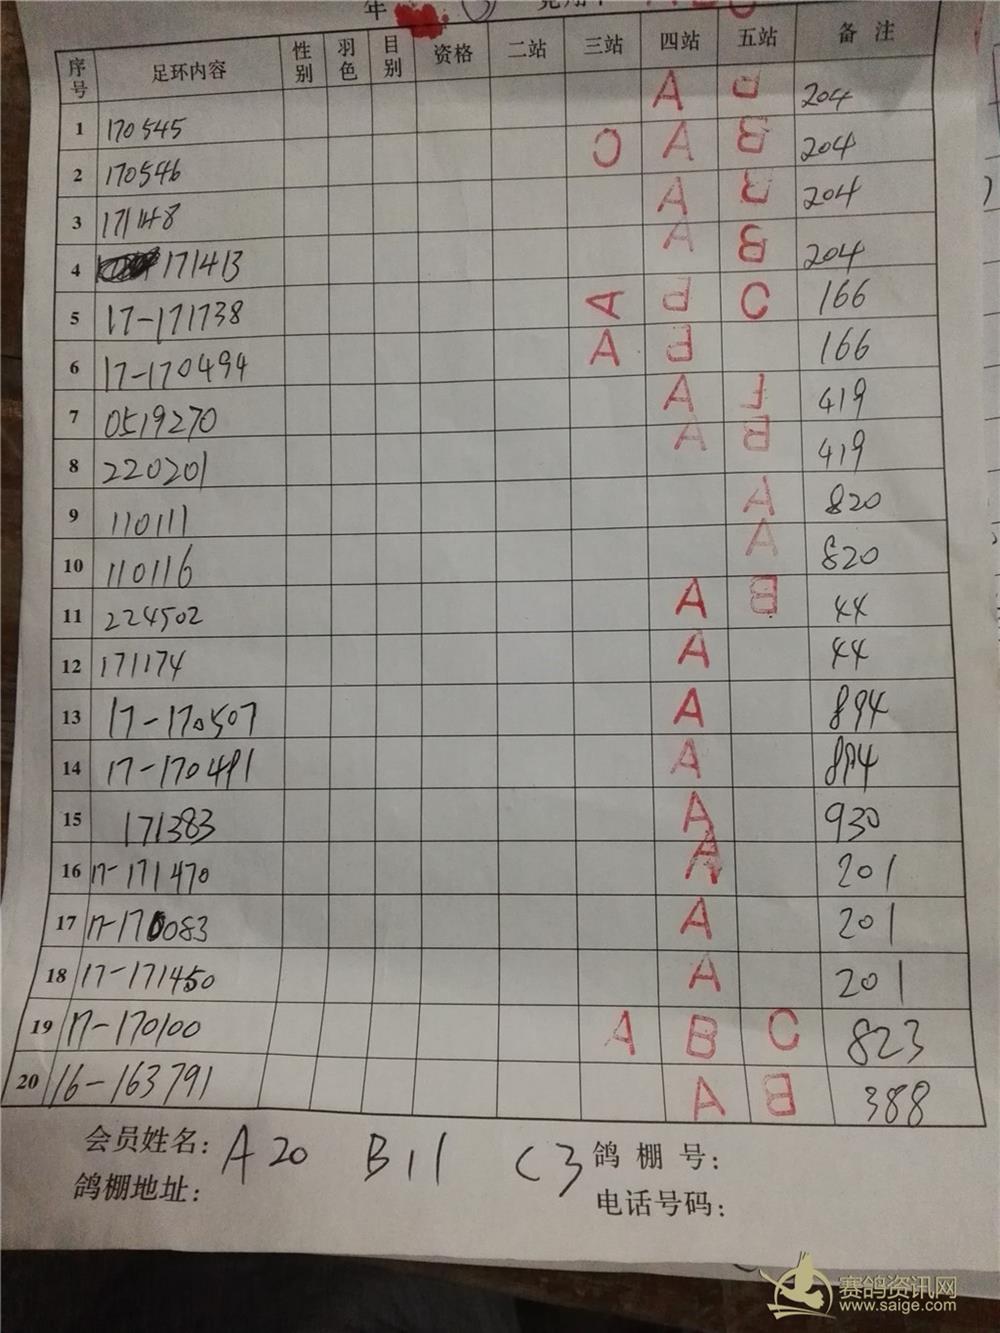 年
序号 足环内容 性别 羽色 目别 资格 二站 三站 四站 五站 备注
1 170545 A B 204
2 170546 C A B 204
3 171148 A B 204
4 171413 A B 204
5 17-171738 A B C 166
6 17-170494 A B 166
7 0519270 A 419
8 220201 A B 419
9 110111 A 820
10 110116 A 820
11 224502 A B 44
12 171174 A 44
13 17-170507 A 894
14 17-170491 A 894
15 171383 A 930
16 17-171470 A 201
17 17-170083 A 201
18 17-171450 A 201
19 17-170100 A B C 823
20 16-163791 A B 388
会员姓名: A20 B11 C3 鸽棚号:
鸽棚地址: 电话号码:
赛鸽资讯网
www.saige.com